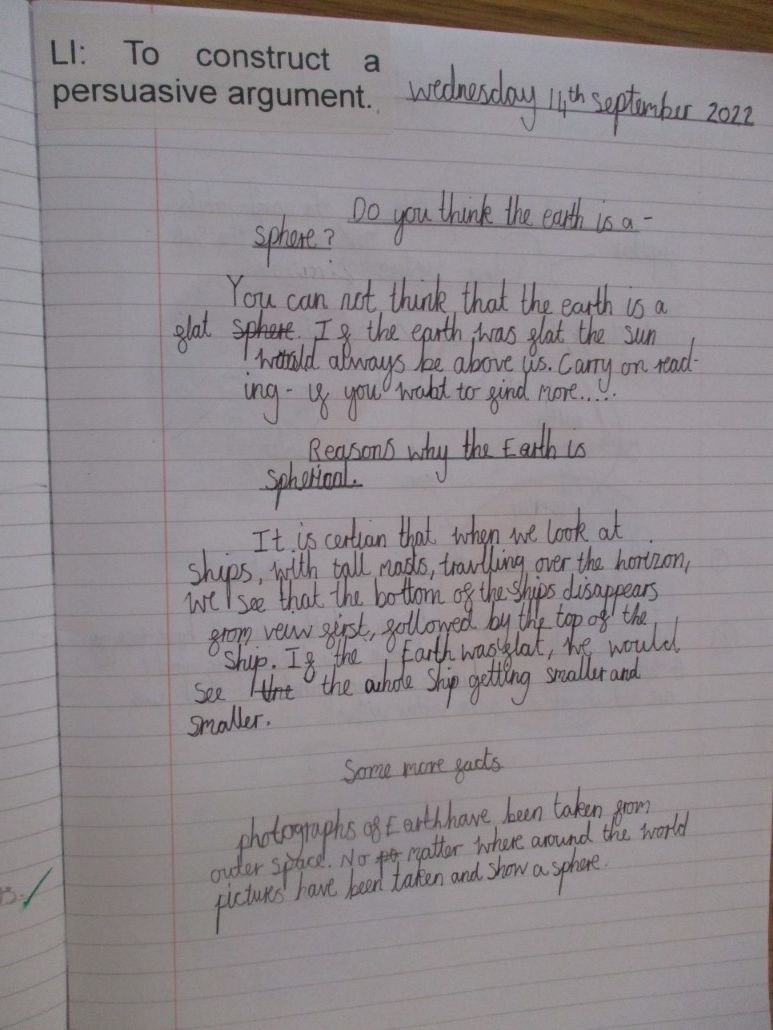 LI: To construct a
persuasive argument.
Wednesday 14th September 2022
Do you think the earth is a-
sphere?
You can not think that the earth is a
flat sphere. If the earth was flat the sun
would always be above us. Carry on read-
ing- if you want to find more.....
Reasons why the Earth is
spherical.
It is certian that when we look at
ships, with tall masts, travlling over the horizon,
we see that the bottom of the ships disappears
from veiw first, followed by the top of the
ship. If the Earth was flat, we would
see the the whole ship getting smaller and
smaller.
Some more facts
photographs of Earth have been taken from
outer space. No matter where around the world
pictures have been taken and show a sphere.